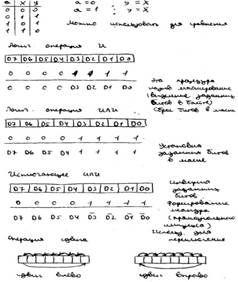 a x y
0 0 0
0 1 1
1 0 1
1 1 0
a=0 ; y=x
a=1 ; y=x̄
Можно использовать для сравнения
Логич операция И
D7 D6 D5 D4 D3 D2 D1 D0
0 0 0 0 1 1 1 1
0 0 0 0 D3 D2 D1 D0
Эта процедура
маскирование
битов в байте)
Сброс битов в маске
Логич операция ИЛИ
D7 D6 D5 D4 D3 D2 D1 D0
0 0 0 0 1 1 1 1
D7 D6 D5 D4 1 1 1 1
Установка
заданных битов
в маске
Исключающее ИЛИ
D7 D6 D5 D4 D3 D2 D1 D0
0 0 0 0 1 1 1 1
D7 D6 D5 D4 D̄3 D̄2 D̄1 D̄0
Инверсия
заданных
битов.
Формирование
импульса)
для
Операция сдвига
сдвиг влево
сдвиг вправо